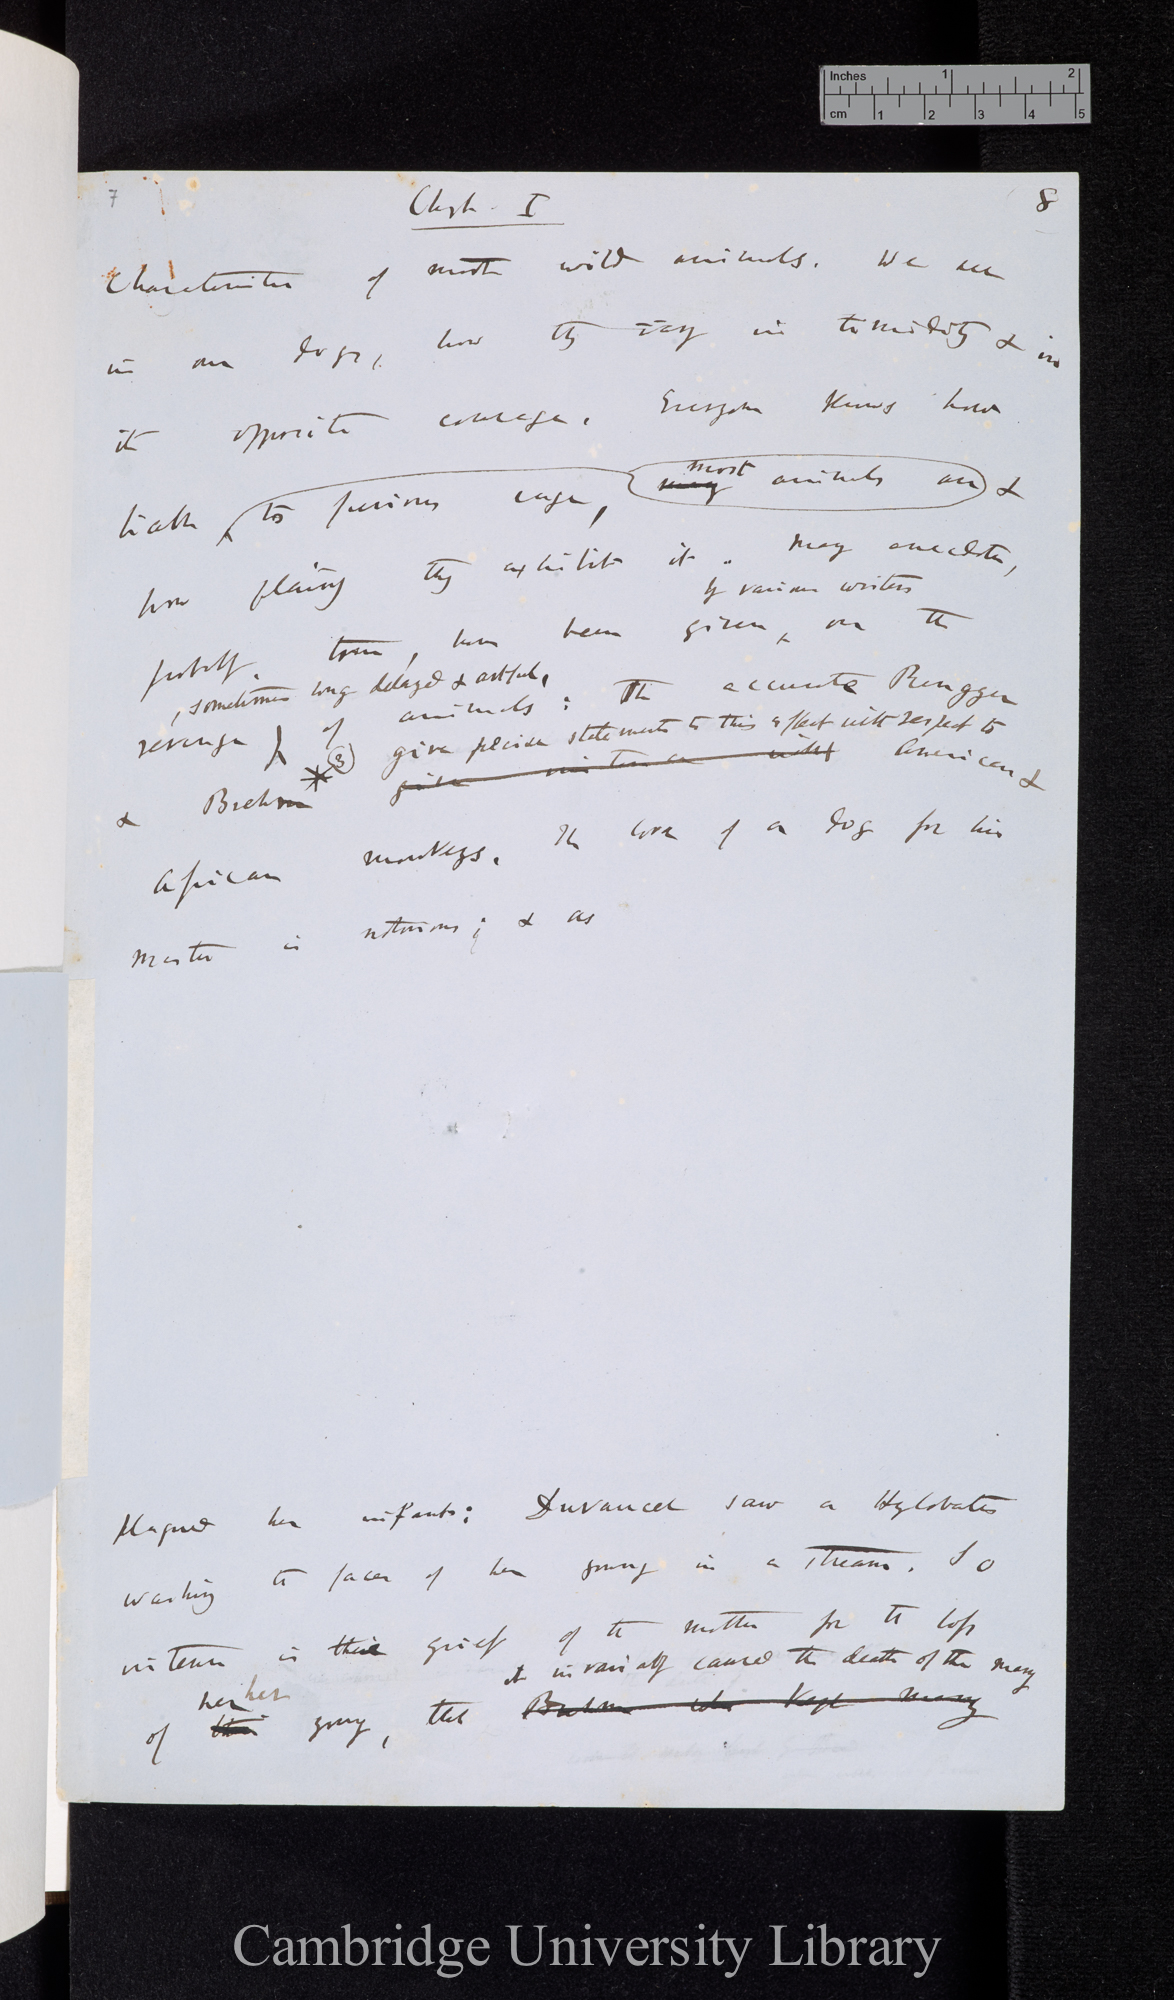 Inches 1 2
cm 1 2 3 4 5
7 Chapt. I 8
characteristic of most wild animals. We see
in our dogs, how they vary in timidity & in
its opposite courage. Everyone knows how
liable to furious rage, many most animals are &
how plainly they exhibit it. Many anecdotes,
by various writers
probably true, have been given, on the
, sometimes long delayed & artful,
revenge of animals: The accurate Rengger
give precise statements to this effect with respect to
& Brehm *(3) give instances with American &
African monkeys. The love of a dog for his
master is notorious; & as
plagued her infants; Duvaucel saw a Hylobates
washing the faces of her young in a stream. So
intense is their grief of the mother for the loss
it invariably caused the death of the many
her her
of their young, that Brehm who kept many
Cambridge University Library